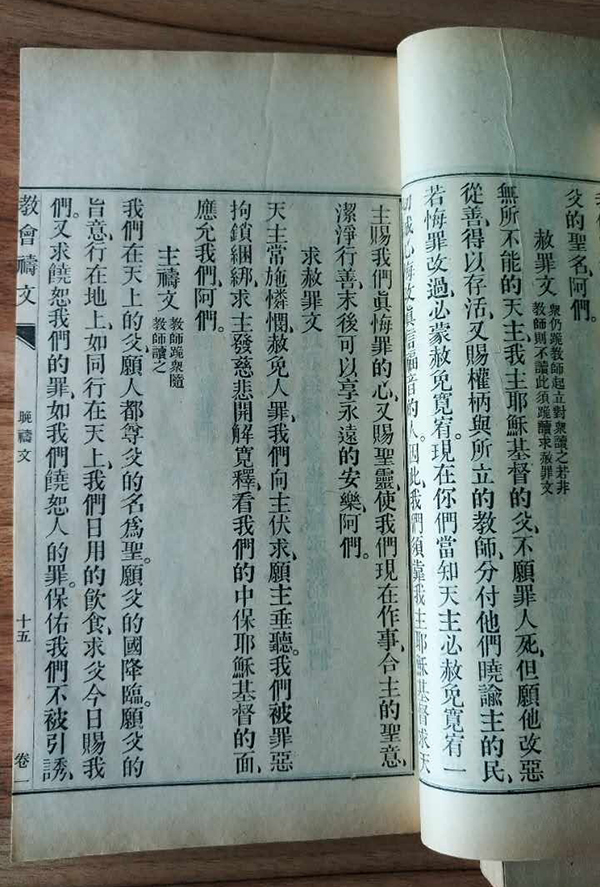 父的聖名、阿們。
赦罪文 衆仍跪教師起立對衆讀之若非
教師則不讀此須跪讀求赦罪文
無所不能的天主、我主耶穌基督的父、不願罪人死、但願他改惡
從善、得以存活、又賜權柄與所立的教師、分付他們曉諭主的民、
若悔罪改過、必蒙赦免寬宥、現在你們當知天主必赦免寬宥一
切誠心悔改眞信福音的人。因此、我們須靠我主耶穌基督求天
主賜我們眞悔罪的心、又賜聖靈、使我們現在作事、合主的聖意、
潔淨行善、末後可以享永遠的安樂、阿們。
求赦罪文
天主常施憐憫、赦免人罪、我們向主伏求、願主垂聽。我們被罪惡
拘鎖綑綁、求主發慈悲開解寬釋、看我們的中保耶穌基督的面、
應允我們、阿們。
主禱文 教師跪衆隨
教師讀之
我們在天上的父、願人都尊父的名爲聖。願父的國降臨。願父的
旨意行在地上、如同行在天上。我們日用的飲食、求父今日賜我
們。又求饒恕我們的罪、如我們饒恕人的罪。保佑我們不被引誘、
教會禱文
晚禱文
十五
卷一